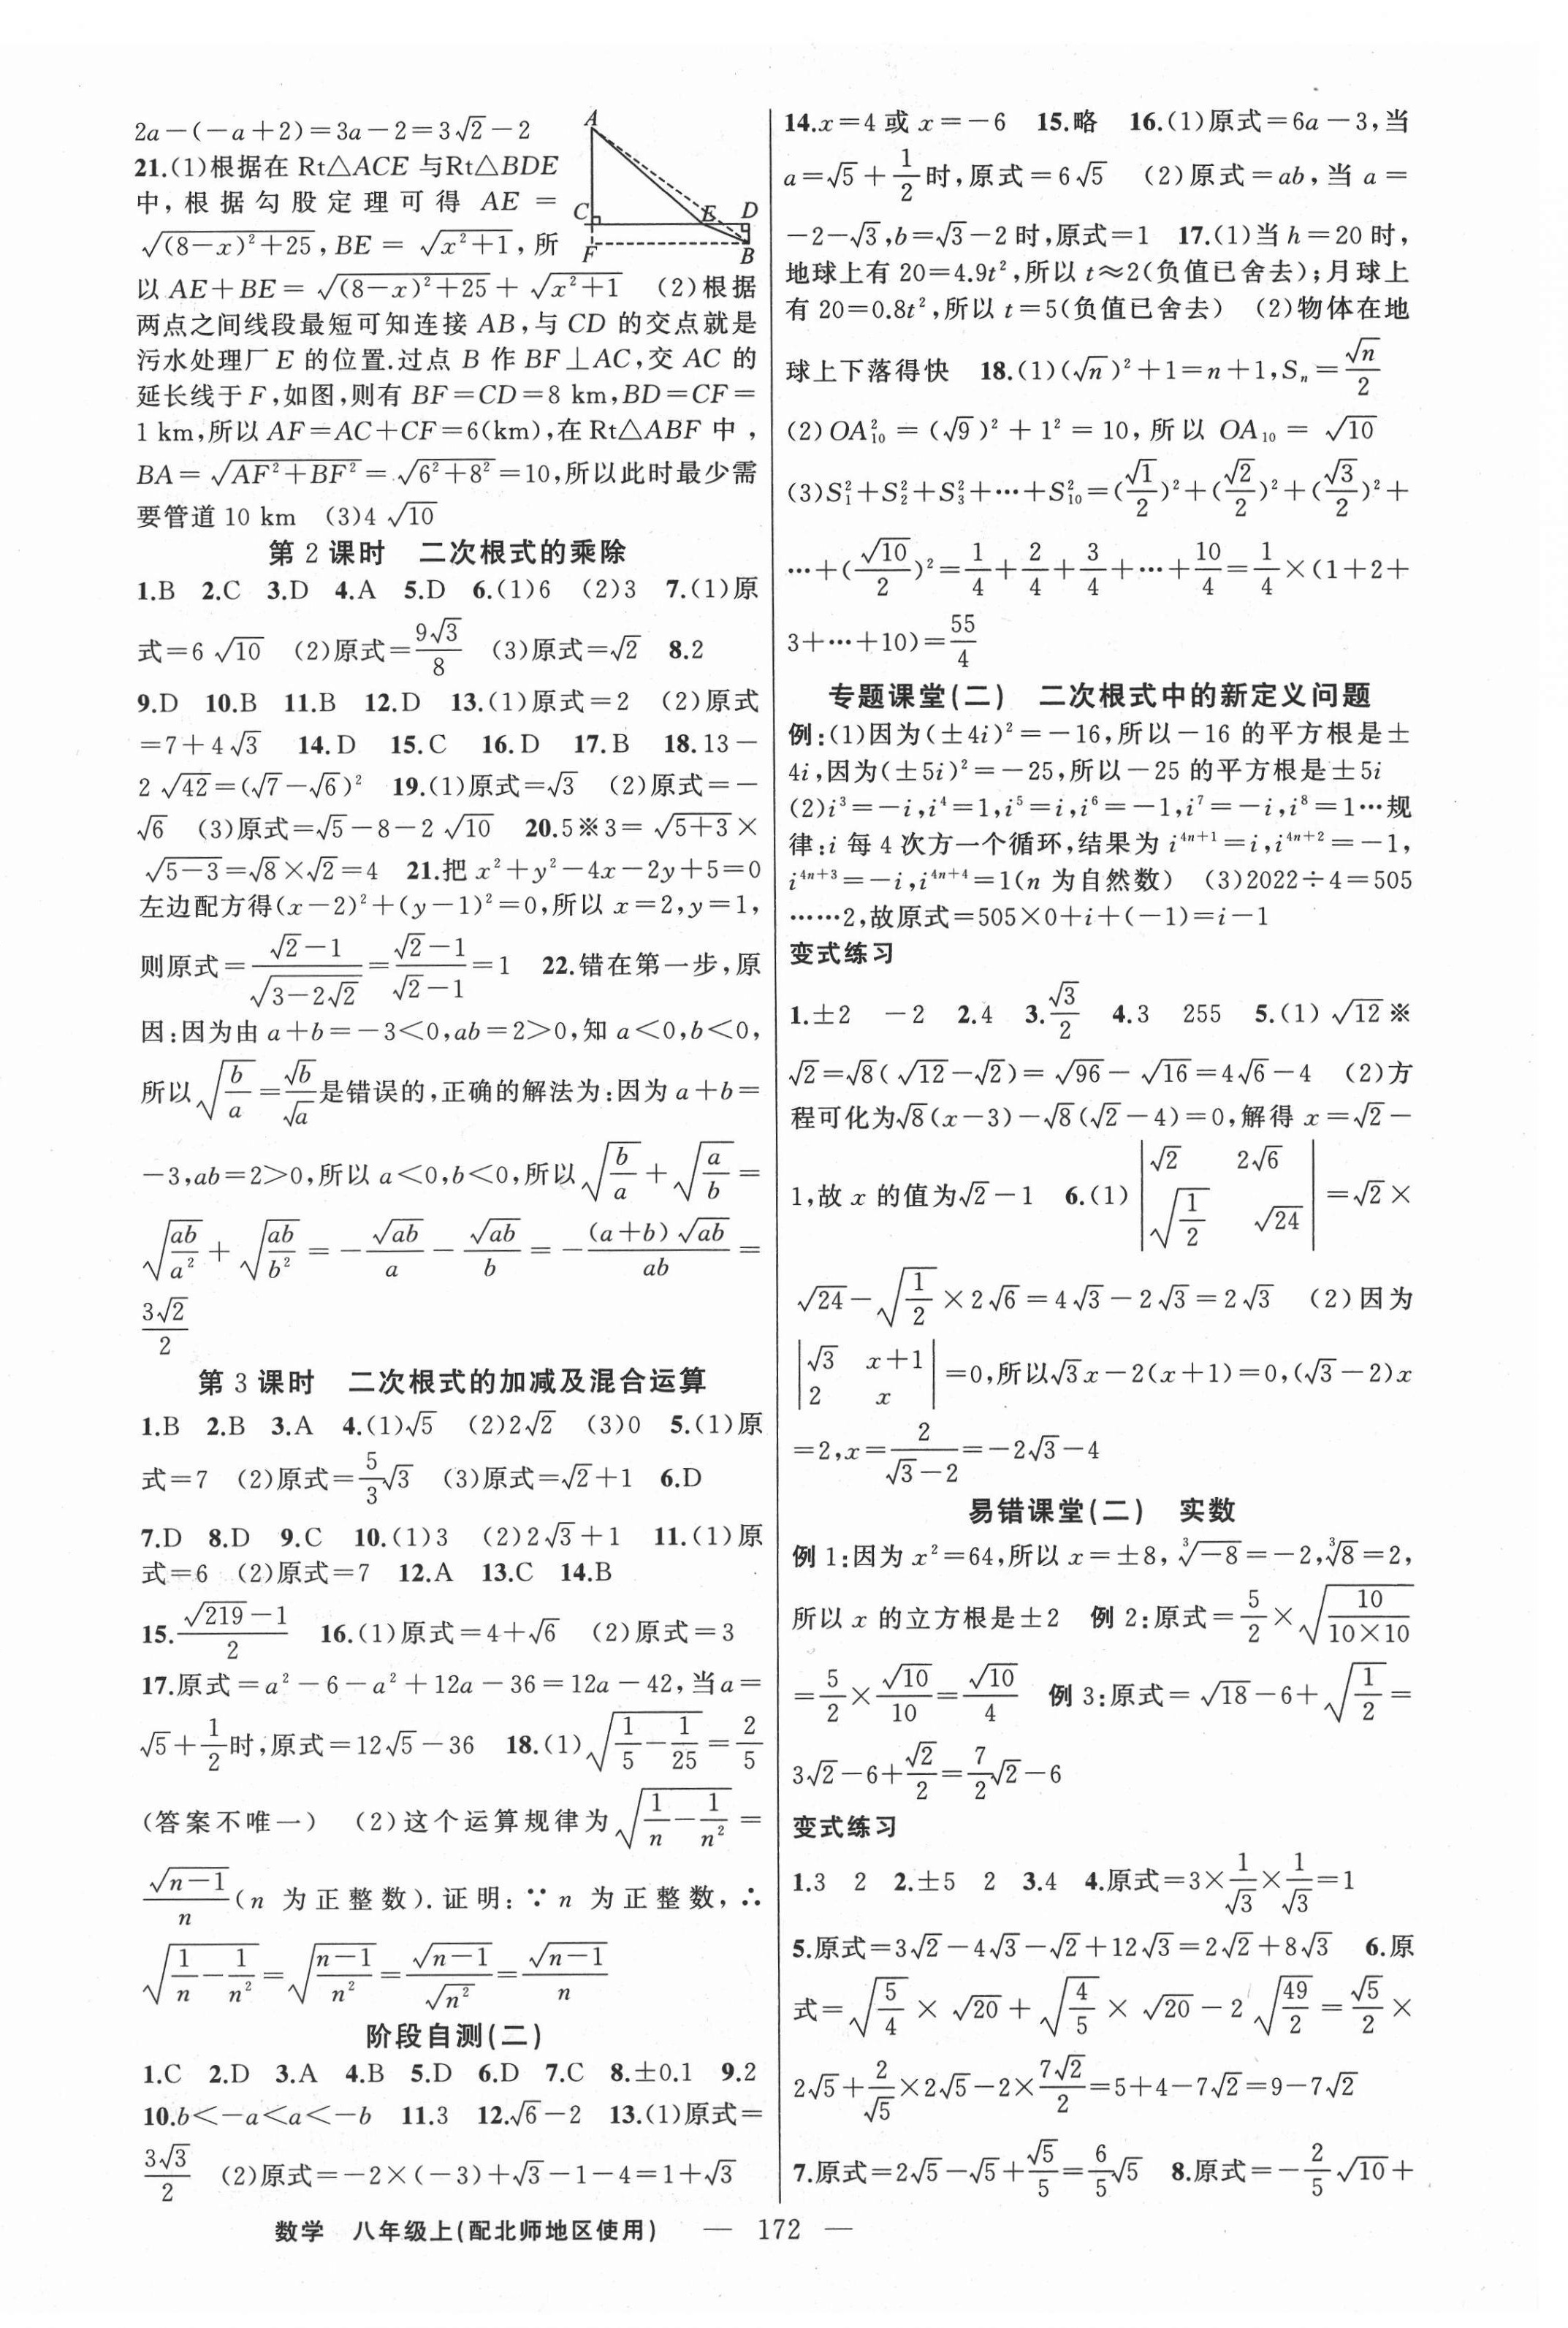 2a－(－a＋2)＝3a－2＝3√2－2
21.(1)根据在 Rt△ACE 与Rt△BDE
中，根据勾股定理可得 AE＝
√((8－x)²＋25)，BE＝√(x²＋1)，所
A
C
E
D
F
B
以 AE＋BE＝√((8－x)²＋25)＋√(x²＋1) (2)根据
两点之间线段最短可知连接 AB，与 CD 的交点就是
污水处理厂 E 的位置.过点 B 作 BF⊥AC，交 AC 的
延长线于 F，如图，则有 BF＝CD＝8 km，BD＝CF＝
1 km，所以 AF＝AC＋CF＝6(km)，在 Rt△ABF 中，
BA＝√(AF²＋BF²)＝√(6²＋8²)＝10，所以此时最少需
要管道 10 km (3)4√10
第 2 课时 二次根式的乘除
1.B 2.C 3.D 4.A 5.D 6.(1)6 (2)3 7.(1)原
式＝6√10 (2)原式＝9√3/8 (3)原式＝√2 8.2
9.D 10.B 11.B 12.D 13.(1)原式＝2 (2)原式
＝7＋4√3 14.D 15.C 16.D 17.B 18.13－
2√42＝(√7－√6)² 19.(1)原式＝√3 (2)原式＝－
√6 (3)原式＝√5－8－2√10 20.5※3＝√(5＋3)×
√(5－3)＝√8×√2＝4 21.把 x²＋y²－4x－2y＋5＝0
左边配方得(x－2)²＋(y－1)²＝0，所以 x＝2，y＝1，
则原式＝(√2－1)/√(3－2√2)＝(√2－1)/(√2－1)＝1 22.错在第一步，原
因：因为由 a＋b＝－3＜0，ab＝2＞0，知 a＜0，b＜0，
所以√(b/a)＝√b/√a是错误的，正确的解法为：因为 a＋b＝
－3，ab＝2＞0，所以 a＜0，b＜0，所以√(b/a)＋√(a/b)＝
√(ab/a²)＋√(ab/b²)＝－√ab/a－√ab/b＝－(a＋b)√ab/ab＝
3√2/2
第 3 课时 二次根式的加减及混合运算
1.B 2.B 3.A 4.(1)√5 (2)2√2 (3)0 5.(1)原
式＝7 (2)原式＝5/3√3 (3)原式＝√2＋1 6.D
7.D 8.D 9.C 10.(1)3 (2)2√3＋1 11.(1)原
式＝6 (2)原式＝7 12.A 13.C 14.B
15.(√219－1)/2 16.(1)原式＝4＋√6 (2)原式＝3
17.原式＝a²－6－a²＋12a－36＝12a－42，当 a＝
√5＋1/2时，原式＝12√5－36 18.(1)√(1/5－1/25)＝2/5
(答案不唯一) (2)这个运算规律为√(1/n－1/n²)＝
√(n－1)/n(n 为正整数).证明：∵n 为正整数，∴
√(1/n－1/n²)＝√((n－1)/n²)＝√(n－1)/√n²＝√(n－1)/n
阶段自测(二)
1.C 2.D 3.A 4.B 5.D 6.D 7.C 8.±0.1 9.2
10.b＜－a＜a＜－b 11.3 12.√6－2 13.(1)原式＝
3√3/2 (2)原式＝－2×(－3)＋√3－1－4＝1＋√3
14.x＝4 或 x＝－6 15.略 16.(1)原式＝6a－3，当
a＝√5＋1/2时，原式＝6√5 (2)原式＝ab，当 a＝
－2－√3，b＝√3－2 时，原式＝1 17.(1)当 h＝20 时，
地球上有 20＝4.9t²，所以 t≈2(负值已舍去)；月球上
有 20＝0.8t²，所以 t＝5(负值已舍去) (2)物体在地
球上下落得快 18.(1)(√n)²＋1＝n＋1，Sₙ＝√n/2
(2)OA₁₀²＝(√9)²＋1²＝10，所以 OA₁₀＝√10
(3)S₁²＋S₂²＋S₃²＋…＋S₁₀²＝(√1/2)²＋(√2/2)²＋(√3/2)²＋
…＋(√10/2)²＝1/4＋2/4＋3/4＋…＋10/4＝1/4×(1＋2＋
3＋…＋10)＝55/4
专题课堂(二) 二次根式中的新定义问题
例：(1)因为(±4i)²＝－16，所以－16 的平方根是±
4i，因为(±5i)²＝－25，所以－25 的平方根是±5i
(2)i³＝－i，i⁴＝1，i⁵＝i，i⁶＝－1，i⁷＝－i，i⁸＝1…规
律：i 每 4 次方一个循环，结果为 i⁴ⁿ⁺¹＝i，i⁴ⁿ⁺²＝－1，
i⁴ⁿ⁺³＝－i，i⁴ⁿ⁺⁴＝1(n 为自然数) (3)2022÷4＝505
……2，故原式＝505×0＋i＋(－1)＝i－1
变式练习
1.±2 －2 2.4 3.√3/2 4.3 255 5.(1)√12※
√2＝√8(√12－√2)＝√96－√16＝4√6－4 (2)方
程可化为√8(x－3)－√8(√2－4)＝0，解得 x＝√2－
1，故 x 的值为√2－1 6.(1)|√2 2√6; √(1/2) √24|＝√2×
√24－√(1/2)×2√6＝4√3－2√3＝2√3 (2)因为
|√3 x＋1; 2 x|＝0，所以√3x－2(x＋1)＝0，(√3－2)x
＝2，x＝2/(√3－2)＝－2√3－4
易错课堂(二) 实数
例 1：因为 x²＝64，所以 x＝±8，∛－8＝－2，∛8＝2，
所以 x 的立方根是±2 例 2：原式＝5/2×√(10/(10×10))
＝5/2×√10/10＝√10/4 例 3：原式＝√18－6＋√(1/2)＝
3√2－6＋√2/2＝7/2√2－6
变式练习
1.3 2 2.±5 2 3.4 4.原式＝3×1/√3×1/√3＝1
5.原式＝3√2－4√3－√2＋12√3＝2√2＋8√3 6.原
式＝√(5/4)×√20＋√(4/5)×√20－2√(49/2)＝√5/2×
2√5＋2/√5×2√5－2×7√2/2＝5＋4－7√2＝9－7√2
7.原式＝2√5－√5＋√5/5＝6/5√5 8.原式＝－2/5√10＋
数学 八年级上(配北师地区使用) — 172 —